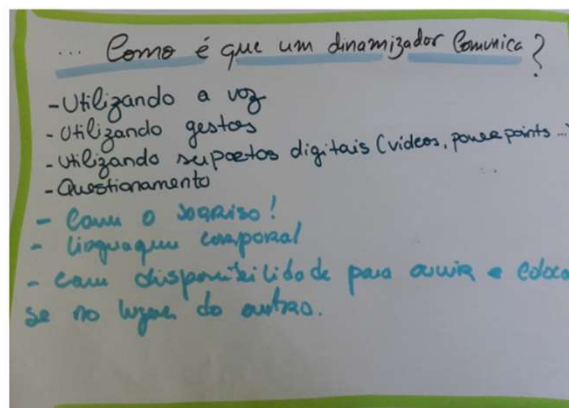 ... Como é que um dinamizador Comunica?
- Utilizando a voz
- Utilizando gestos
- Utilizando suportos digitais (videos, powerpoints ...)
- Questionamento
- Com o sorriso!
- linguagem corporal
- com disponibilidade para ouvir e coloca
se no lugar do outro.